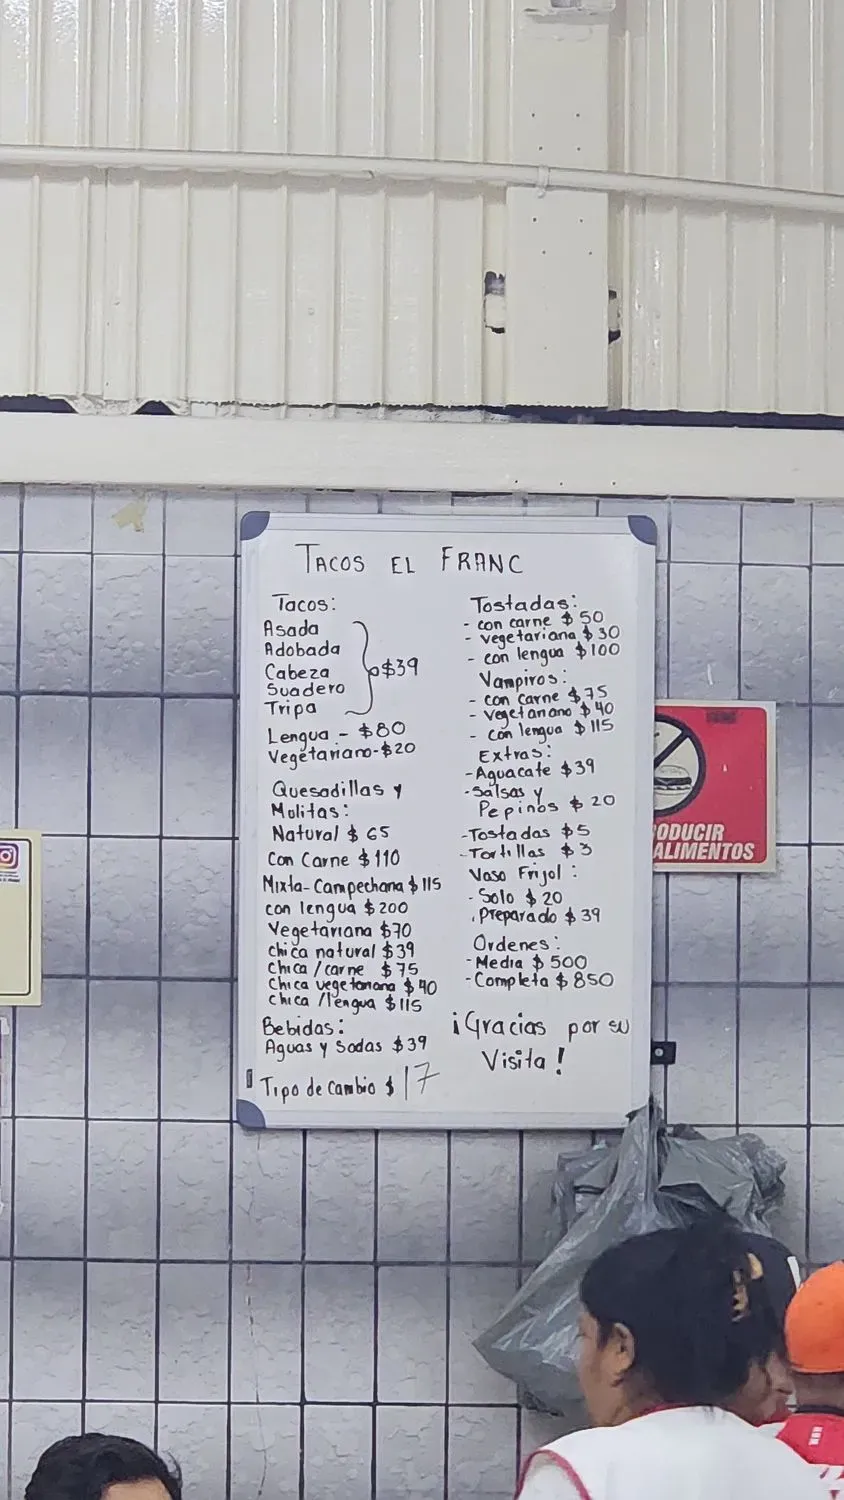 TACOS EL FRANC
Tacos:
Asada
Adobada
Cabeza
Suadero
Tripa
$39
Lengua - $80
Vegetariano-$20
Quesadillas y
Mulitas:
Natural $65
Con Carne $110
Mixta-Campechana $115
con lengua $200
Vegetariana $70
chica natural $39
chica/carne $75
chica vegetariana $40
chica/lengua $115
Bebidas:
Aguas y Sodas $39
Tipo de cambio $17
Tostadas:
- con carne $50
- vegetariana $30
- con lengua $100
Vampiros:
- con carne $75
- vegetariano $40
- con lengua $115
Extras:
- Aguacate $39
- Salsas y
Pepinos $20
- Tostadas $5
- Tortillas $3
Vaso Frijol:
- Solo $20
. Preparado $39
Ordenes:
- Media $500
- Completa $850
¡Gracias por su
Visita!
ODUCIR
ALIMENTOS